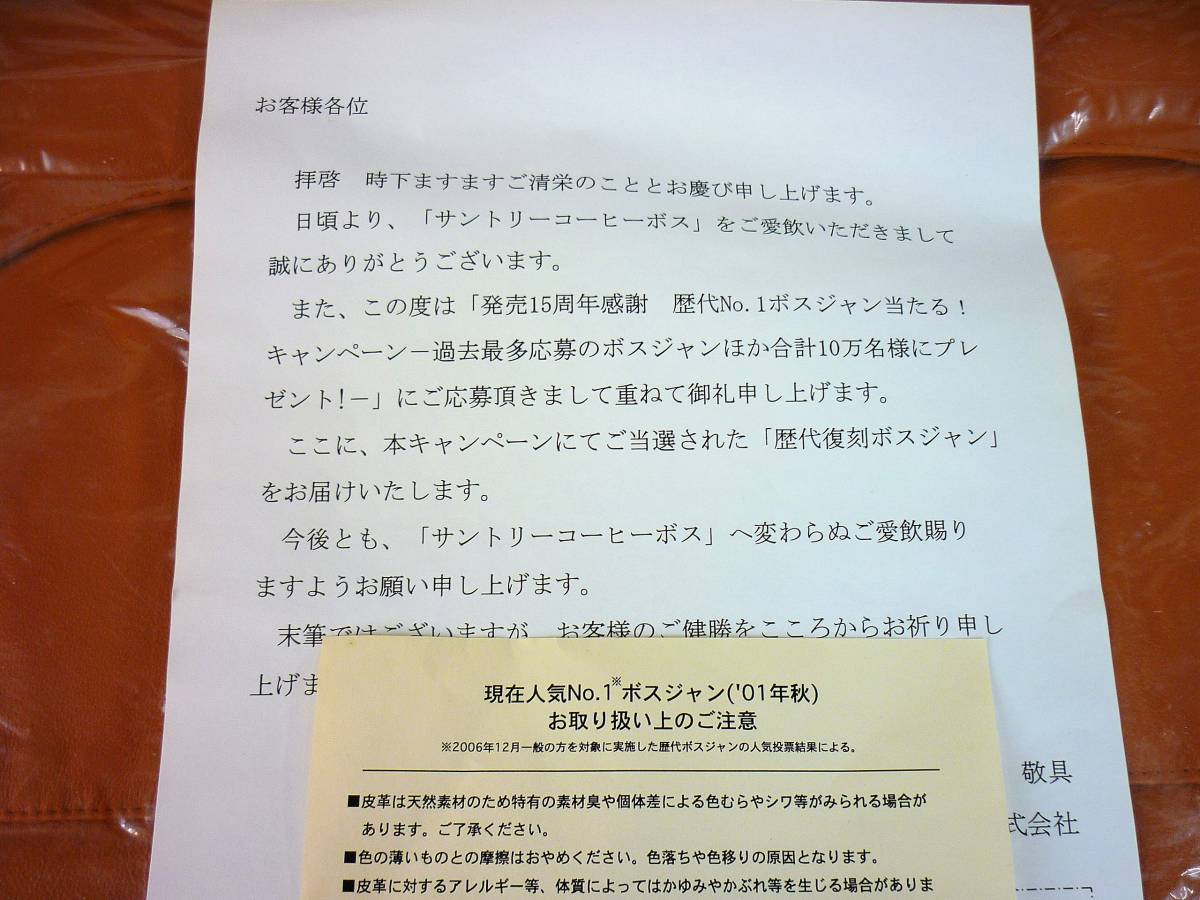 お客様各位
拝啓　時下ますますご清栄のこととお慶び申し上げます。
日頃より、「サントリーコーヒーボス」をご愛飲いただきまして
誠にありがとうございます。
また、この度は「発売15周年感謝　歴代No.1ボスジャン当たる！
キャンペーン－過去最多応募のボスジャンほか合計10万名様にプレ
ゼント!－」にご応募頂きまして重ねて御礼申し上げます。
ここに、本キャンペーンにてご当選された「歴代復刻ボスジャン」
をお届けいたします。
今後とも、「サントリーコーヒーボス」へ変わらぬご愛飲賜り
ますようお願い申し上げます。
末筆ではございますが、お客様のご健勝をこころからお祈り申し
上げま
敬具
式会社
現在人気No.1※ボスジャン('01年秋)
お取り扱い上のご注意
※2006年12月一般の方を対象に実施した歴代ボスジャンの人気投票結果による。
■皮革は天然素材のため特有の素材臭や個体差による色むらやシワ等がみられる場合が
あります。ご了承ください。
■色の薄いものとの摩擦はおやめください。色落ちや色移りの原因となります。
■皮革に対するアレルギー等、体質によってはかゆみやかぶれ等を生じる場合がありま